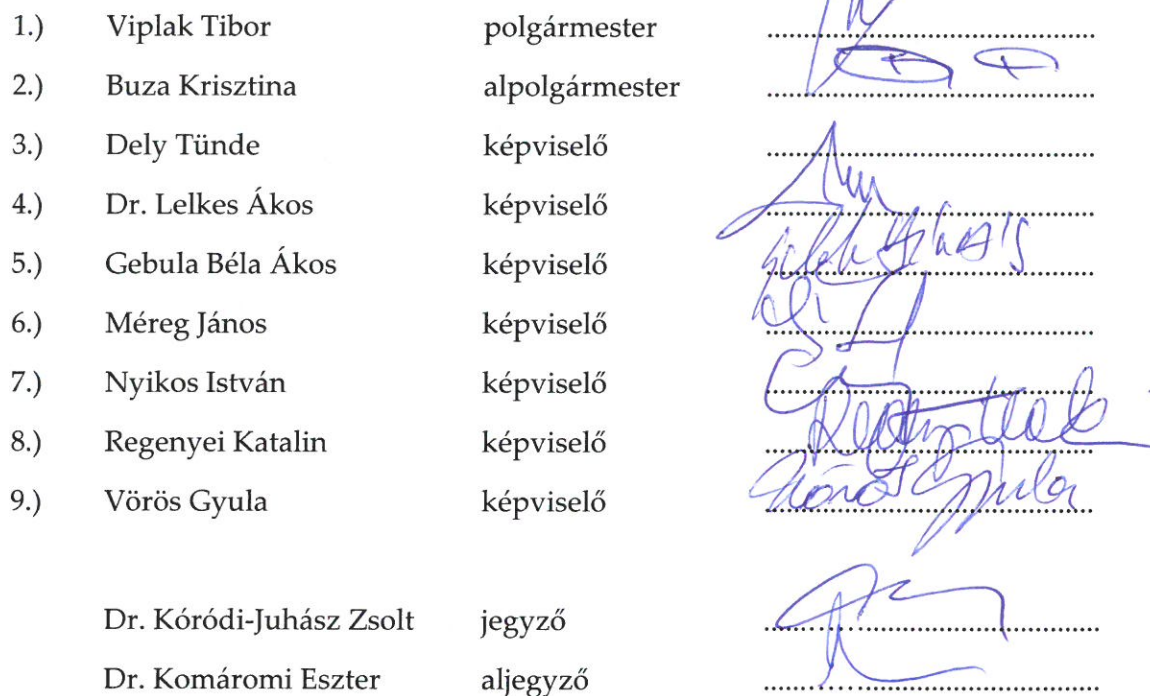 1.) Viplak Tibor polgármester
2.) Buza Krisztina alpolgármester
3.) Dely Tünde képviselő
4.) Dr. Lelkes Ákos képviselő
5.) Gebula Béla Ákos képviselő
6.) Méreg János képviselő
7.) Nyikos István képviselő
8.) Regenyei Katalin képviselő
9.) Vörös Gyula képviselő Vörös Gyula
Dr. Kóródi-Juhász Zsolt jegyző
Dr. Komáromi Eszter aljegyző